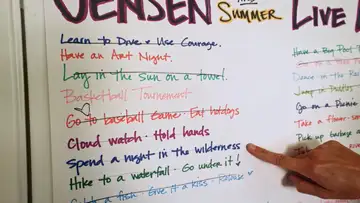 JENSEN
THIS
SUMMER
LIVE
Learn to Dive & Use Courage.
Have an Art Night.
Lay in the Sun on a towel.
Basketball Tournement
Go to baseball Game. Eat hotdogs
Cloud watch. Hold hands
Spend a night in the wilderness
Hike to a waterfall. Go under it ↓
Catch a fish. Give it a kiss. Release
Have a Bug
Dance in the
Jump in Puddles
Go on a Picnic
Take a flower
Pick up garbage